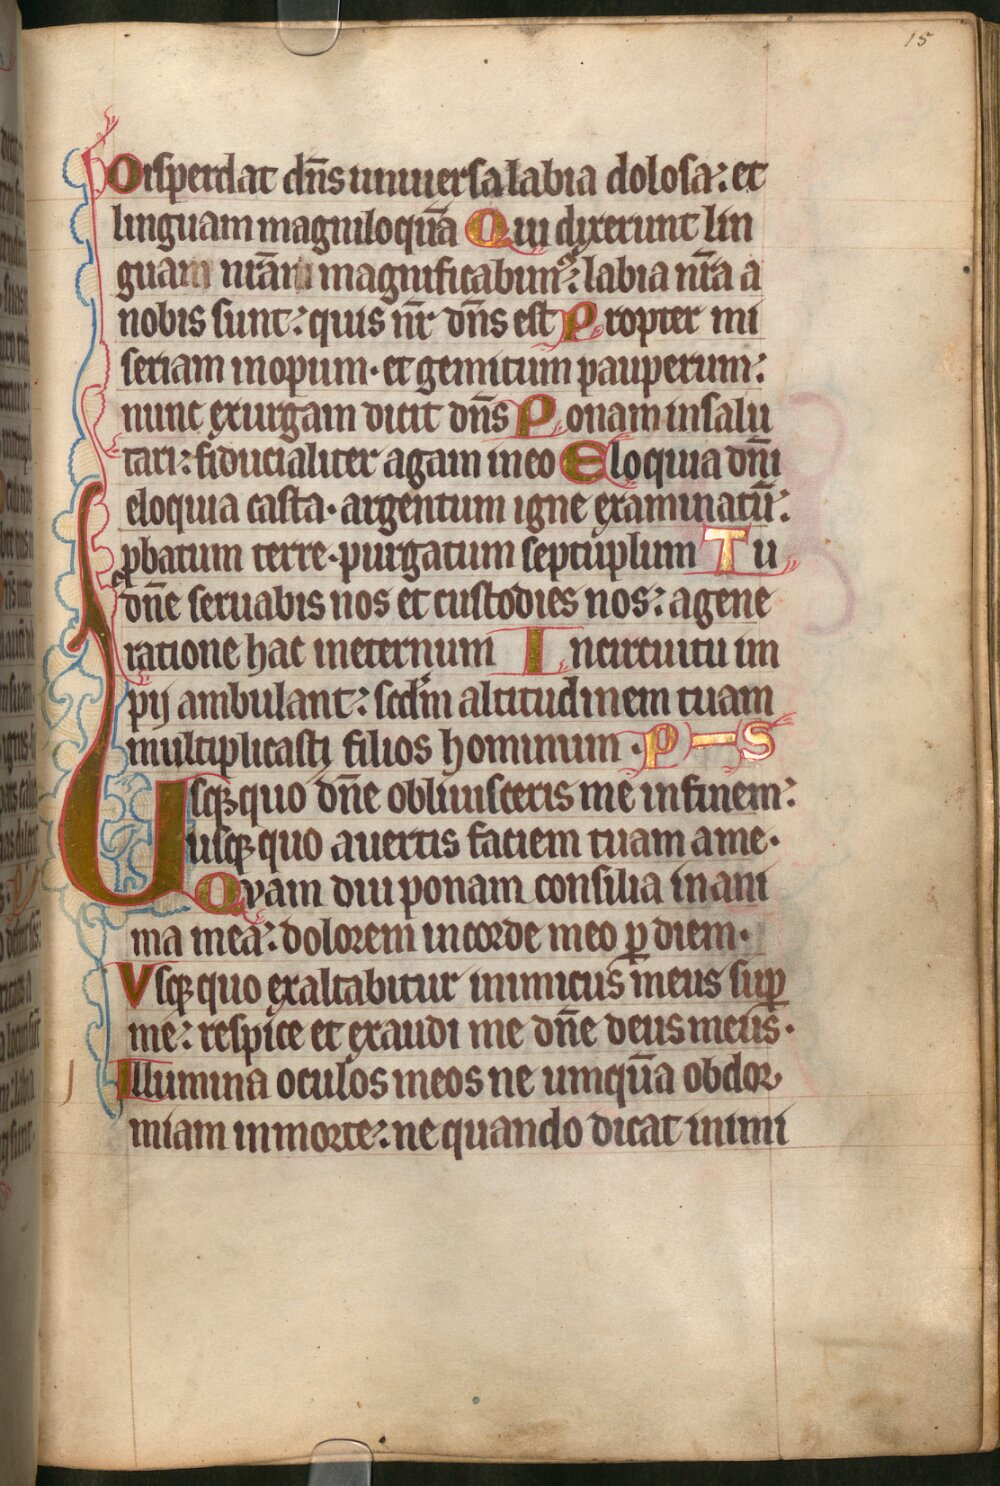 15
Disperdat dn̄s uniuersa labia dolosa: et
linguam magniloquā Qui dixerunt lin
guam nr̄am magnificabim: labia nr̄a a
nobis sunt: quis nr̄ dn̄s est Propter mi
seriam inopum · et gemitum pauperum:
nunc exurgam dicit dn̄s Ponam in salu
tari: fiducialiter agam in eo Eloquia dn̄i
eloquia casta · argentum igne examinatū:
ꝓbatum terre · purgatum septuplum Tu
dn̄e seruabis nos et custodies nos: a gene
ratione hac in eternum In circuitu im
pij ambulant: scd̄m altitudinem tuam
multiplicasti filios hominum · P S
Usqꝫquo dn̄e obliuisceris me in finem:
usqꝫquo auertis faciem tuam a me ·
Qvam diu ponam consilia in ani
ma mea: dolorem in corde meo ꝑ diem ·
Vsqꝫquo exaltabitur inimicus meus suꝑ
me: respice et exaudi me dn̄e deus meus ·
Illumina oculos meos ne umquā obdor
miam in morte: ne quando dicat inimi